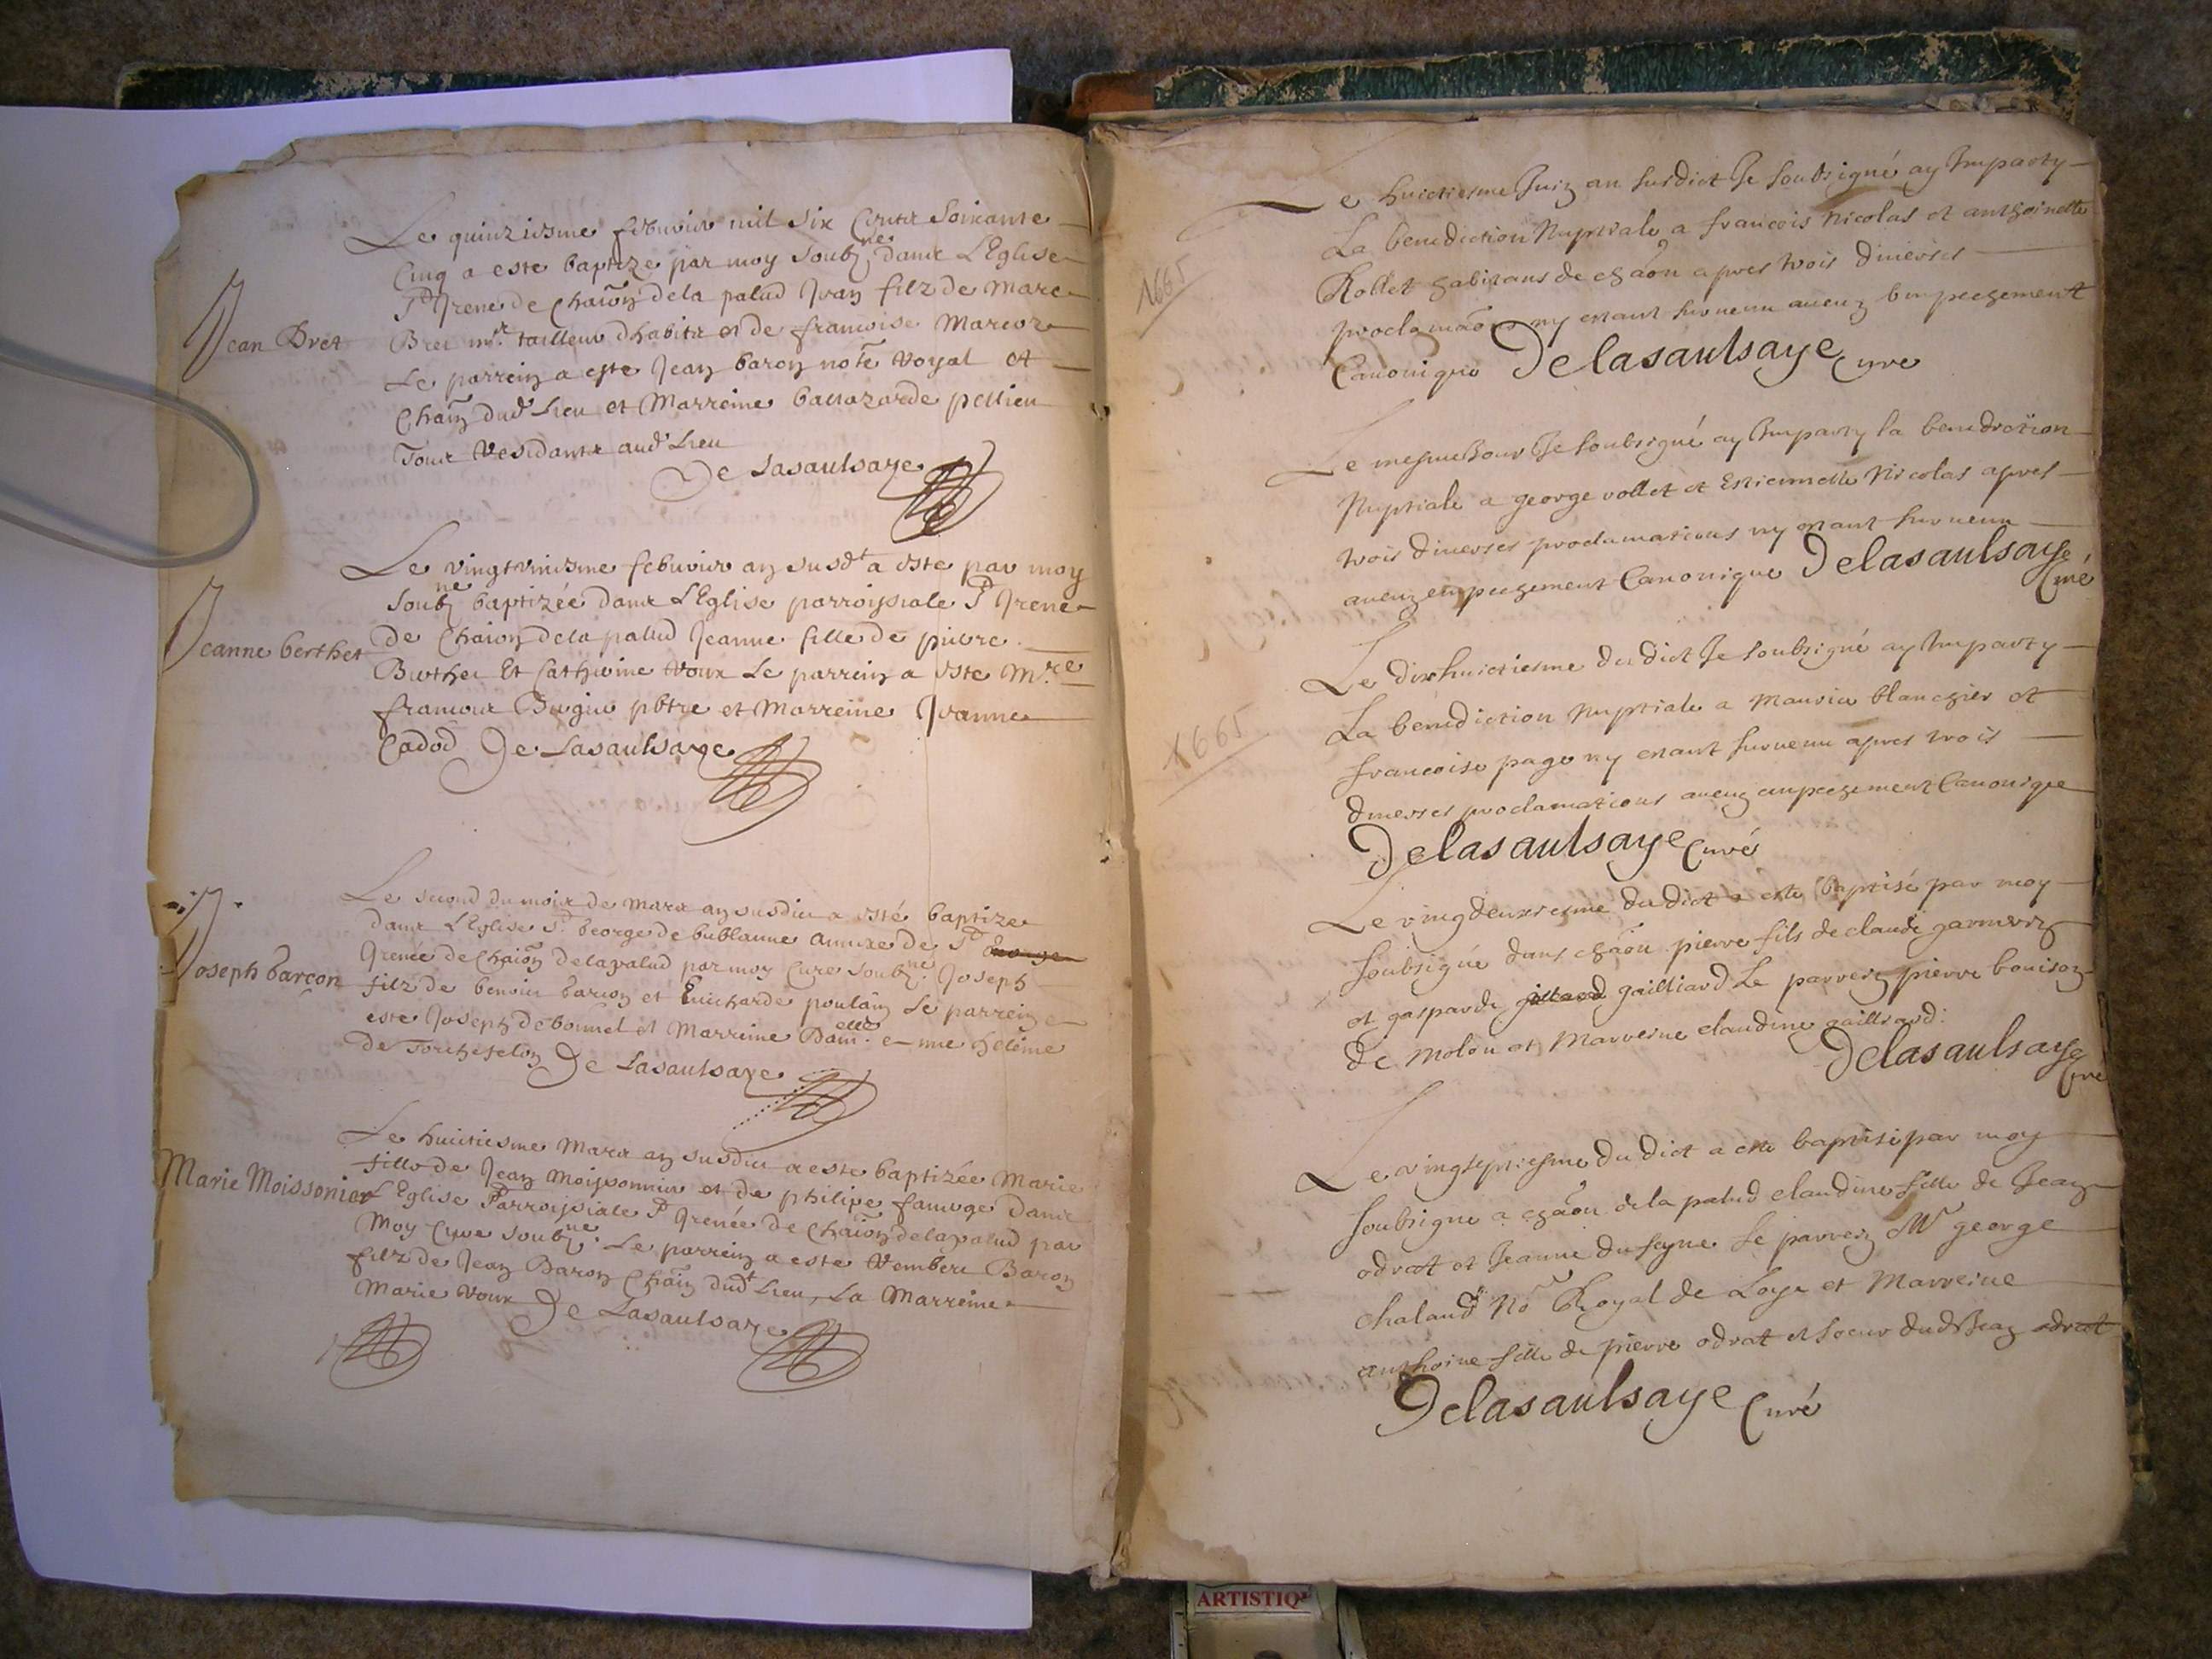 Le quinziesme febvrier mil six centz soixante
Cinq a este baptize par moy soubz.ne dans L'Eglise
St Irene de Chaon dela palud Jean filz de Marc
Jean Bret
Bret mr tailleur dhabitz et de francoise
Le parrein a este Jean baron note Royal et
Chain dud Lieu et Marreine baltazarde pellieu
Tous Residantz aud Lieu
De Lasaulsaye
Le vingtuniesme febvrier an susdt a este par moy
soubz.ne baptizée dans L'Eglise parroissiale St Irene
de Chaon dela palud Jeanne fille de pierre
Jeanne berthet
Berthet Et Catherine Roux Le parrein a este Mre
francois pbtre et Marreine Jeanne
Cadod De Lasaulsaye
Le second du mois de mars an susdict a esté baptize
dans L'Eglise St George de bublanne annexe de St
Irenée de Chaon delapalud par moy Cure soubz.ne Joseph
Joseph barçon
filz de benoist barcon et poulain Le parrein
este Joseph debonnel et Marreine Dam.elle heleine
De Torchefelon De Lasaulsaye
Le huictiesme Mars an susdict a este baptizée Marie
fille de Jean Moissonnier et de philipe famoge dans
Marie Moissonier
L'Eglise Parroissiale St Irenée de Chaon delapalud par
Moy Cure soubz.ne Le parrein a este Rembert Baron
filz de Jean Baron Chain dudt Lieu, La Marreine
Marie Roux De Lasaulsaye
Le huictiesme Juin an susdict Je soubsigné ay Imparty
La benediction Nuptiale a francois Nicolas et anthoinette
1665
Rollet habitans de chaon apres trois diverses
proclamaons ny estant survenu aucun empechement
Canonique Delasaulsaye Cure
Le mesme Jour Je soubsigné ay Imparty la benediction
Nuptiale a george rollet et Estiennette Nicolas apres
trois diverses proclamations ny estant survenu
aucun empechement Canonique Delasaulsaye Curé
Le dixhuictiesme du dict Je soubsigné ay Imparty
La benediction Nuptiale a Maurice blanchier et
1665
francoise page ny estant survenu apres trois
diverses proclamations aucun empechement Canonique
Delasaulsaye Curé
Le vingdeuxiesme du dict a este baptisé par moy
soubsigné dans chaon pierre fils de claude
et gasparde gailliard Le parrein pierre bouison
de Molon et Marreine claudine gailliard:
Delasaulsaye Cure
Le vingseptiesme du dict a este baptisé par moy
soubsigne a chaon dela palud claudine fille de Jean
odrat et Jeanne du Le parrein Mr george
chaland No Royal de Loye et Marreine
anthoine fille de pierre odrat et soeur dud Jean odrat
Delasaulsaye Curé
ARTISTIQ